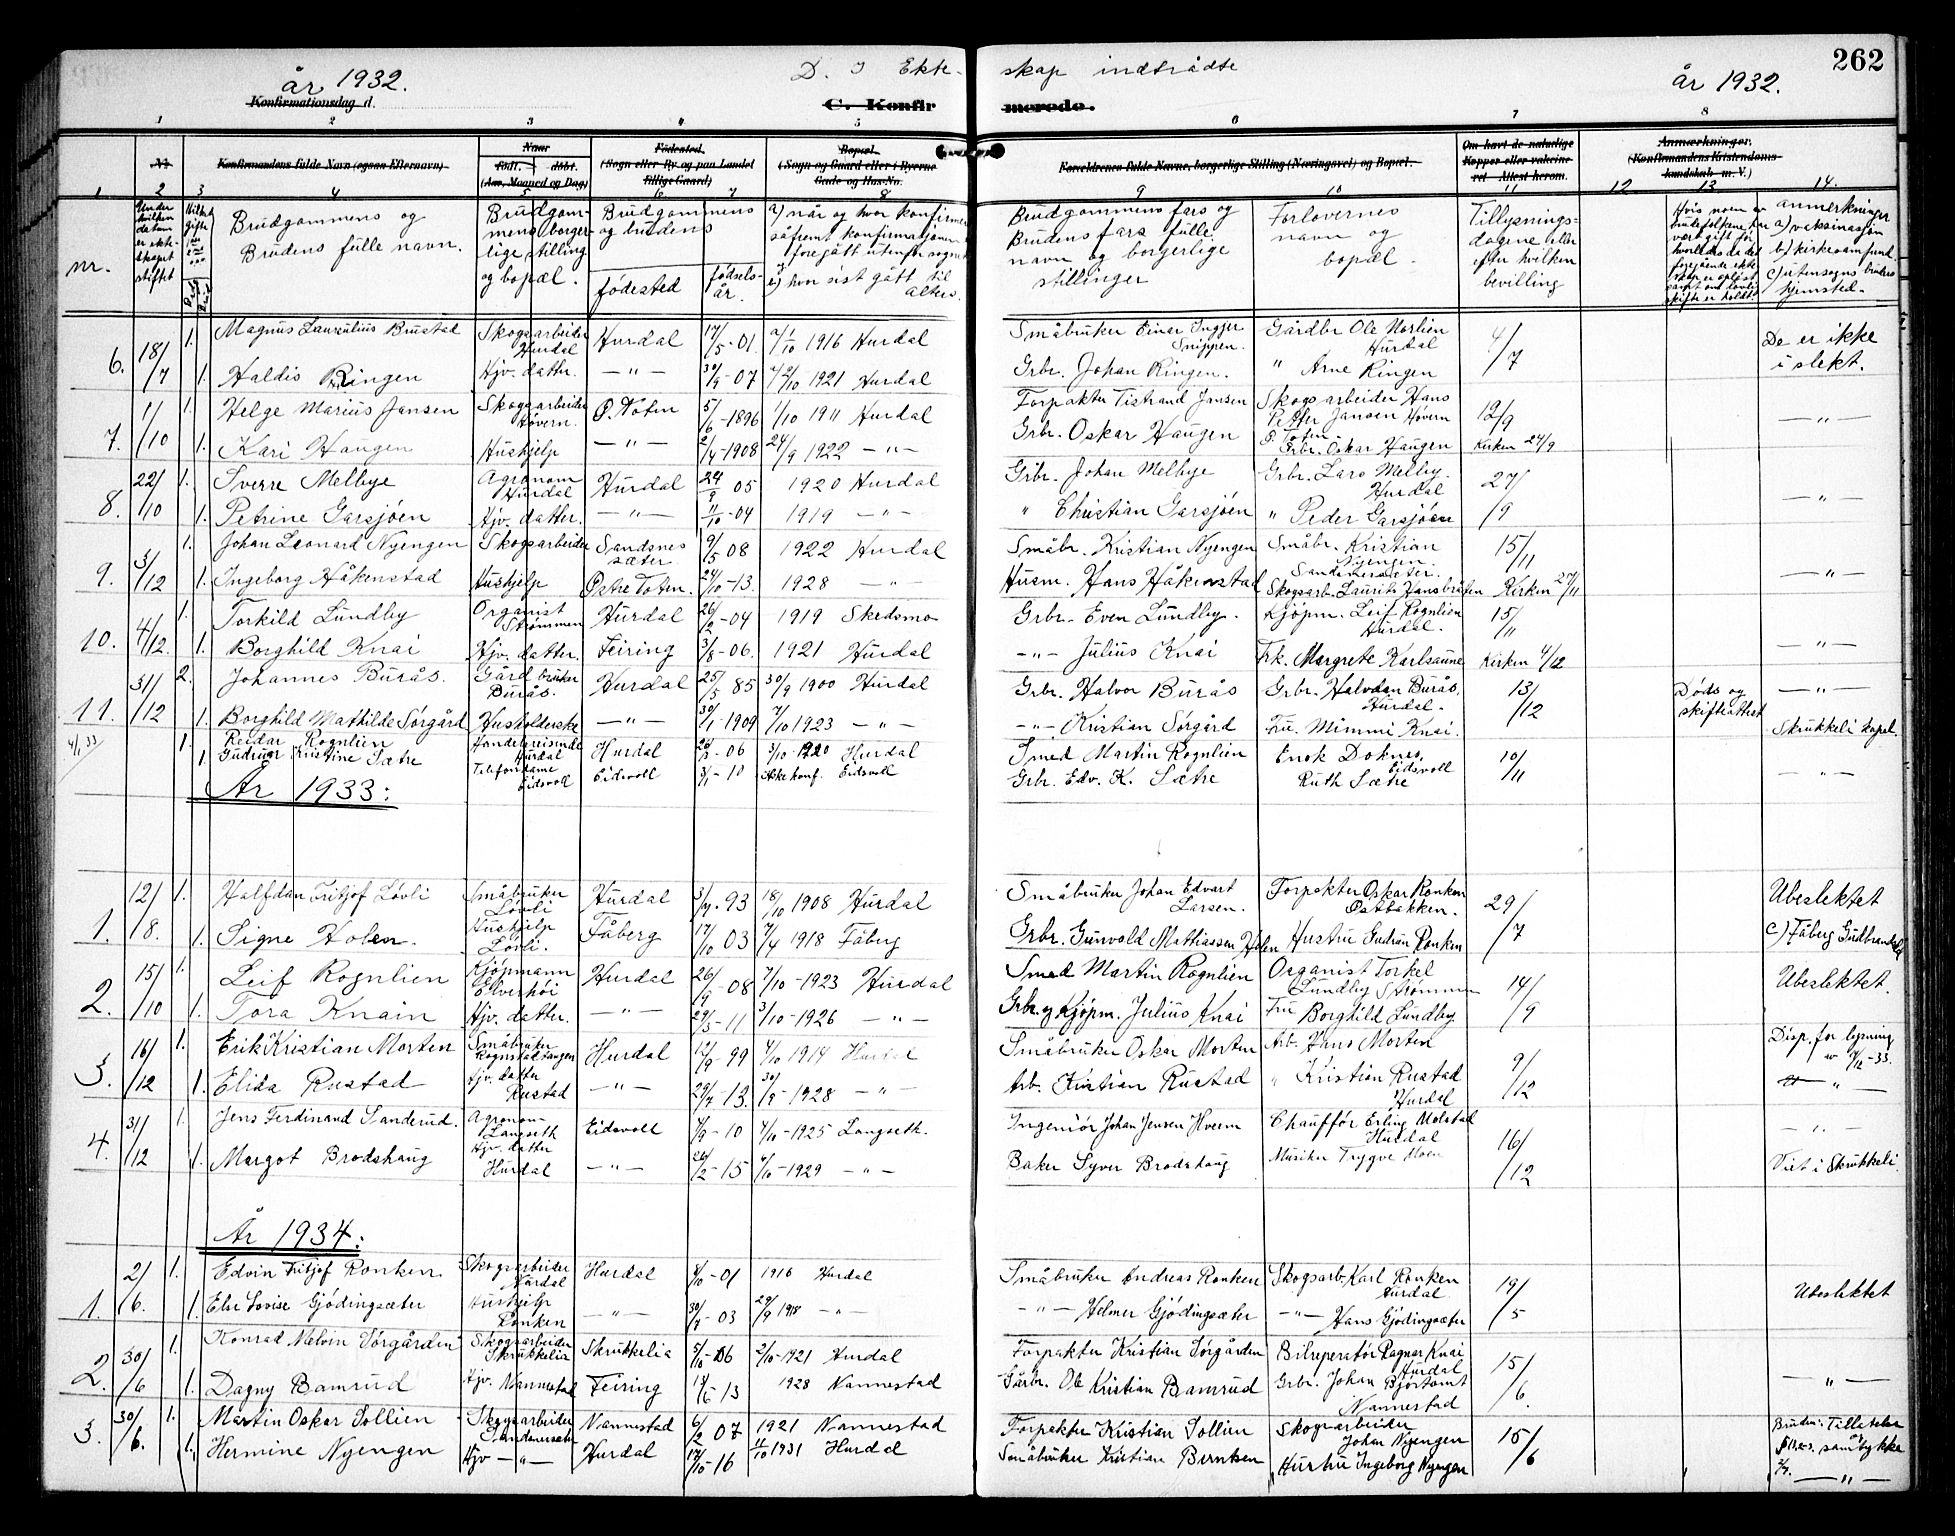 262
år 1932.
D. I Ekte-
skap indtrådte
år 1932.
Konfirmationsdag d.
C. Konfir
merede.
1 2 3 4 5 6 7 8
No
Konfirmandens fulde Navn (ogsaa Efternavn).
Naar
født. døbt.
(Aar, Maaned og Dag)
Fødested.
(Sogn eller By og paa Landet
tillige Gaard)
Bopæl.
(Sogn og Gaard eller i Byerne
Gade og Hus-No.
Forældrenes fulde Navne, borgerlige Stilling (Næringsvei) og Bopæl.
Om havt de naturlige
Kopper eller vakcine-
ret - Attest herom.
Anmærkninger.
(Konfirmandens Kristendoms-
kundskab m. V.)
1 2 3 4 5 6 7 8 9 10 11 12 13 14.
nr.
Under hvilken datum er ekte-skapet stiftet
Brudgommens og
Brudens fulle navn.
Brudgom-
mens borger-
lige stilling
og bopæl.
Brudgommens
og brudens
fødested
fødsels-
år.
a) når og hvor konfirmer
såfremt konfirmasjonen
foregått utenfor sognet
b) hvor sist gått til
alters.
Brudgommens fars og
Brudens fars fulle
navn og borgerlige
stillinger
Forlovernes
navn og
bopæl.
Tillysnings-
dagene eller
efter hvilken
bevilling
Hvis noen av brudefolkene har vært gift før hvorledes da det foregående ekte-skap er opløst samt om lovlig skifte er holdt
anmerkninger
a) vaksinasjon
b) kirkesamfund
c) utensogns bruders
hjemsted.
6. 18/7 1. Magnus Laurulius Brustad Skogsarbeider Hurdal Hurdal 17/5-01. 2/10 1916 Hurdal Småbruker Einar Ingjer Snippen. Gårdbr Ole Norlien Hurdal 4/7 De er ikke i slekt.
1. Haldis Ringen Hjv. datter. —"— 30/9-07 2/10 1921 Hurdal Grbr. Johan Ringen. " Arne Ringen
7. 1/10 1. Helge Marius Jansen Skogsarbeider Høvern. Ø. Toten 5/6-1896 1/10 1911 Hurdal Forpakter Tistrand Jansen Skogsarbeider Hans Petter Jansen Høvern Ø. Toten 12/9 —"—
1. Kari Haugen Hushjelp —"— 2/4-1908 24/9 1922 —"— Grbr. Oskar Haugen Grbr. Oskar Haugen Kirken 24/9
8. 22/10 1. Sverre Melbye Agronom Hurdal Hurdal 24/9 05 1920 Hurdal Grbr. Johan Melbye Grbr. Lars Melby. Hurdal 27/9 —"—
1. Petrine Garsjøen Hjv. datter. —"— 11/10-04 1919 —"— " Christian Garsjøen " Peder Garsjøen
9. 3/12 1. Johan Leonard Nyengen Skogsarbeider Sandsnes sæter 9/5 08 1922 Hurdal Småbr. Kristian Nyengen Småbr. Kristian Nyengen. 15/11 —"—
1. Ingeborg Håkenstad Hushjelp Østre Toten. 24/10-13. 1928 —"— Husm. Hans Håkenstad Skogsarb. Laurits Hansbråten Kirken 27/11
10. 4/12. 1. Torkild Lundby Organist Strømmen Hurdal 26/2-04 1919 Skedsmo Grbr. Even Lundby. Kjøpm. Leif Rognlien Hurdal. 15/11 —"—
1. Borghild Knai Hjv. datter. Feiring 3/8-06. 1921 Hurdal —"— Julius Knai Frk. Margrete Karlsaune Kirken 4/12
11. 31/12 2. Johannes Burås. Gårdbruker Burås. Hurdal 25/5 85 30/9 1900 Hurdal Grbr. Halvor Burås Grbr. Halvdan Burås, Hurdal. 13/12 Døds og skifteattest —"—
1. Borghild Mathilde Sørgård Husholderske —"— 30/1-1909 7/10 1923 —"— —"— Kristian Sørgård Fru. Mimmi Knai. Skrukkeli kapel.
4/1 33 1. Reidar Rognlien Handelsreisende Hurdal Hurdal 06 3/10-1920 Hurdal Smed Martin Rognlien Enok Doknes, Eidsvoll 10/11 —"—
1. Gudrun Kristine Sætre Telefondame Eidsvoll Eidsvoll 3/1-10 Ikke konf. Eidsvoll Grbr. Edv. K. Sætre Ruth Sætre
År 1933:
1. 12/8. 1. Halfdan Fritjof Løvli Småbruker Løvli Hurdal 93 18/10 1908 Hurdal Småbruker Johan Edvart Larsen. Forpakter Oskar Ronken Østbakken. 29/7 Ubeslektet
1. Signe Holen. Hushjelp Løvli. Fåberg 17/10 03 7/4 1918 Fåberg Grbr. Gunvold Mathiassen Holen Hustru Gudrun Ronken c) Fåberg Gudbrandsd
2. 15/10 1. Leif Rognlien Kjøpmann Elverhøi Hurdal 26/9-08 7/10-1923 Hurdal Smed Martin Rognlien Organist Torkel Lundby Strømmen 14/9 Ubeslektet.
1. Tora Knain Hjv. datter. —"— 29/5-11 3/10-1926 —"— Grbr. og Kjøpm. Julius Knai Fru Borghild Lundby
3. 16/12 1. Erik Kristian Morten Småbruker Rognstadtangen Hurdal 12/9-99 4/10 1914 Hurdal Småbruker Oskar Morten Arb. Hans Morten 9/12 Disp. for lysning av 7/12-33.
1. Elida Rustad Hjv. datter Rustad —"— 29/7-13. 1928 —"— Arb. Kristian Rustad " Kristian Rustad Hurdal —"—
4. 31/12 1. Jens Ferdinand Sanderud. Agronom Langseth Eidsvoll 4/9-10 4/10-1925 Langseth. Ingeniør Johan Jensen Hverm Chauffør Erling Molstad Hurdal 16/12 —"—
1. Margot Brodshaug Hjv. datter Hurdal —"— 26/2-15 1929 —"— Baker Syver Brodshaug Musiker Trygve Moen Viet i Skrukkeli.
År 1934:
1. 2/6. 1. Edvin Fritjof Ronken Skogsarbeider Hurdal Hurdal 4/10-01 1916 Hurdal Småbruker Andreas Ronken Skogsarb. Karl Ronken Hurdal 19/5 Ubeslektet
1. Els Lovise Gjødingsæter Hushjelp Ronken —"— 30/7-03 29/9 1918 —"— —"— Helmer Gjødingsæter —"— Hans Gjødingsæter
2. 30/6 1. Konrad Melvin Sørgården Skogsarbeider Skrukkelia Skrukkelia 5/10-06 2/10-1921 Hurdal Forpakter Kristian Sørgården Bilreperatør Ragnar Knai Hurdal 15/6. —"—
1. Dagny Bamrud Hjv. Nannestad Feiring 13 1928 Nannestad Gårbr. Ole Kristian Bamrud Grbr. Johan Bjørtomt Nannestad
3. 30/6. 1. Martin Oskar Sollien Skogsarbeider Nannestad 6/2 07 1921 Nannestad Forpakter Kristian Sollien Skogsarbeider Johan Nyengen 15/6 Bruden: Tillatelse samtykke
1. Hermine Nyengen Hjv —"— Hurdal 17/10-16 1/10 1931 Hurdal Småbruker Kristian Berntsen Hustru Ingeborg Nyengen —"—